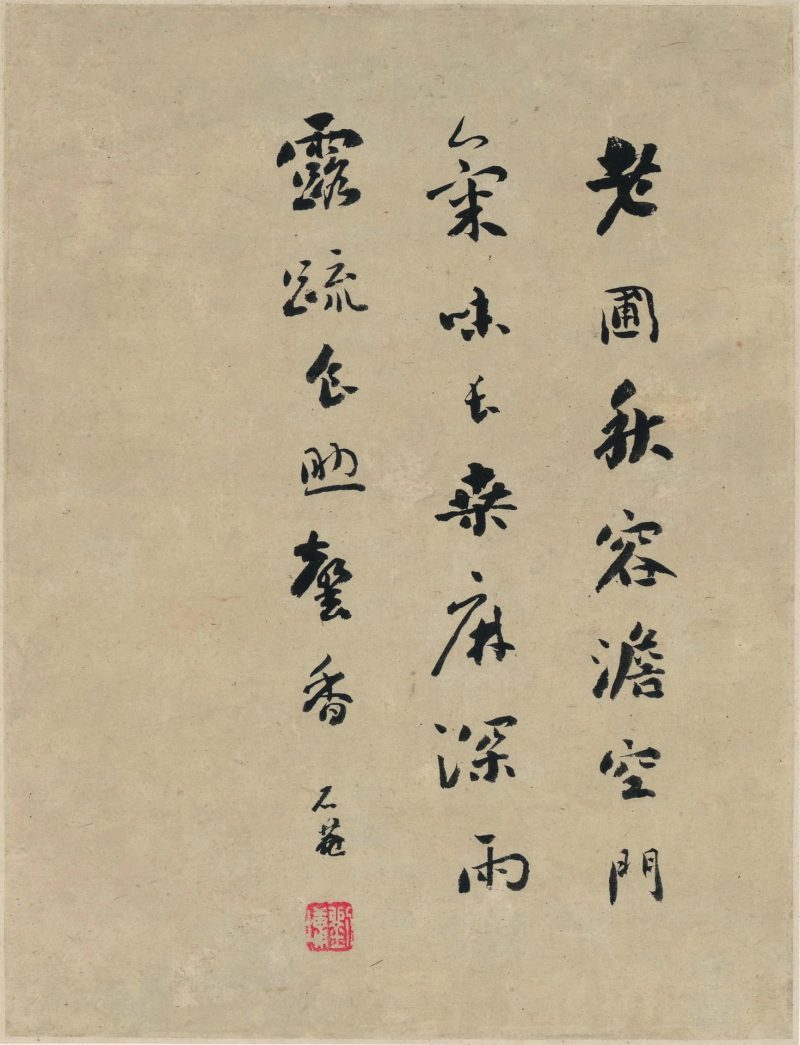 老圃秋容澹空門
氣味長桑麻深雨
露疏食助馨香
石菴
劉墉